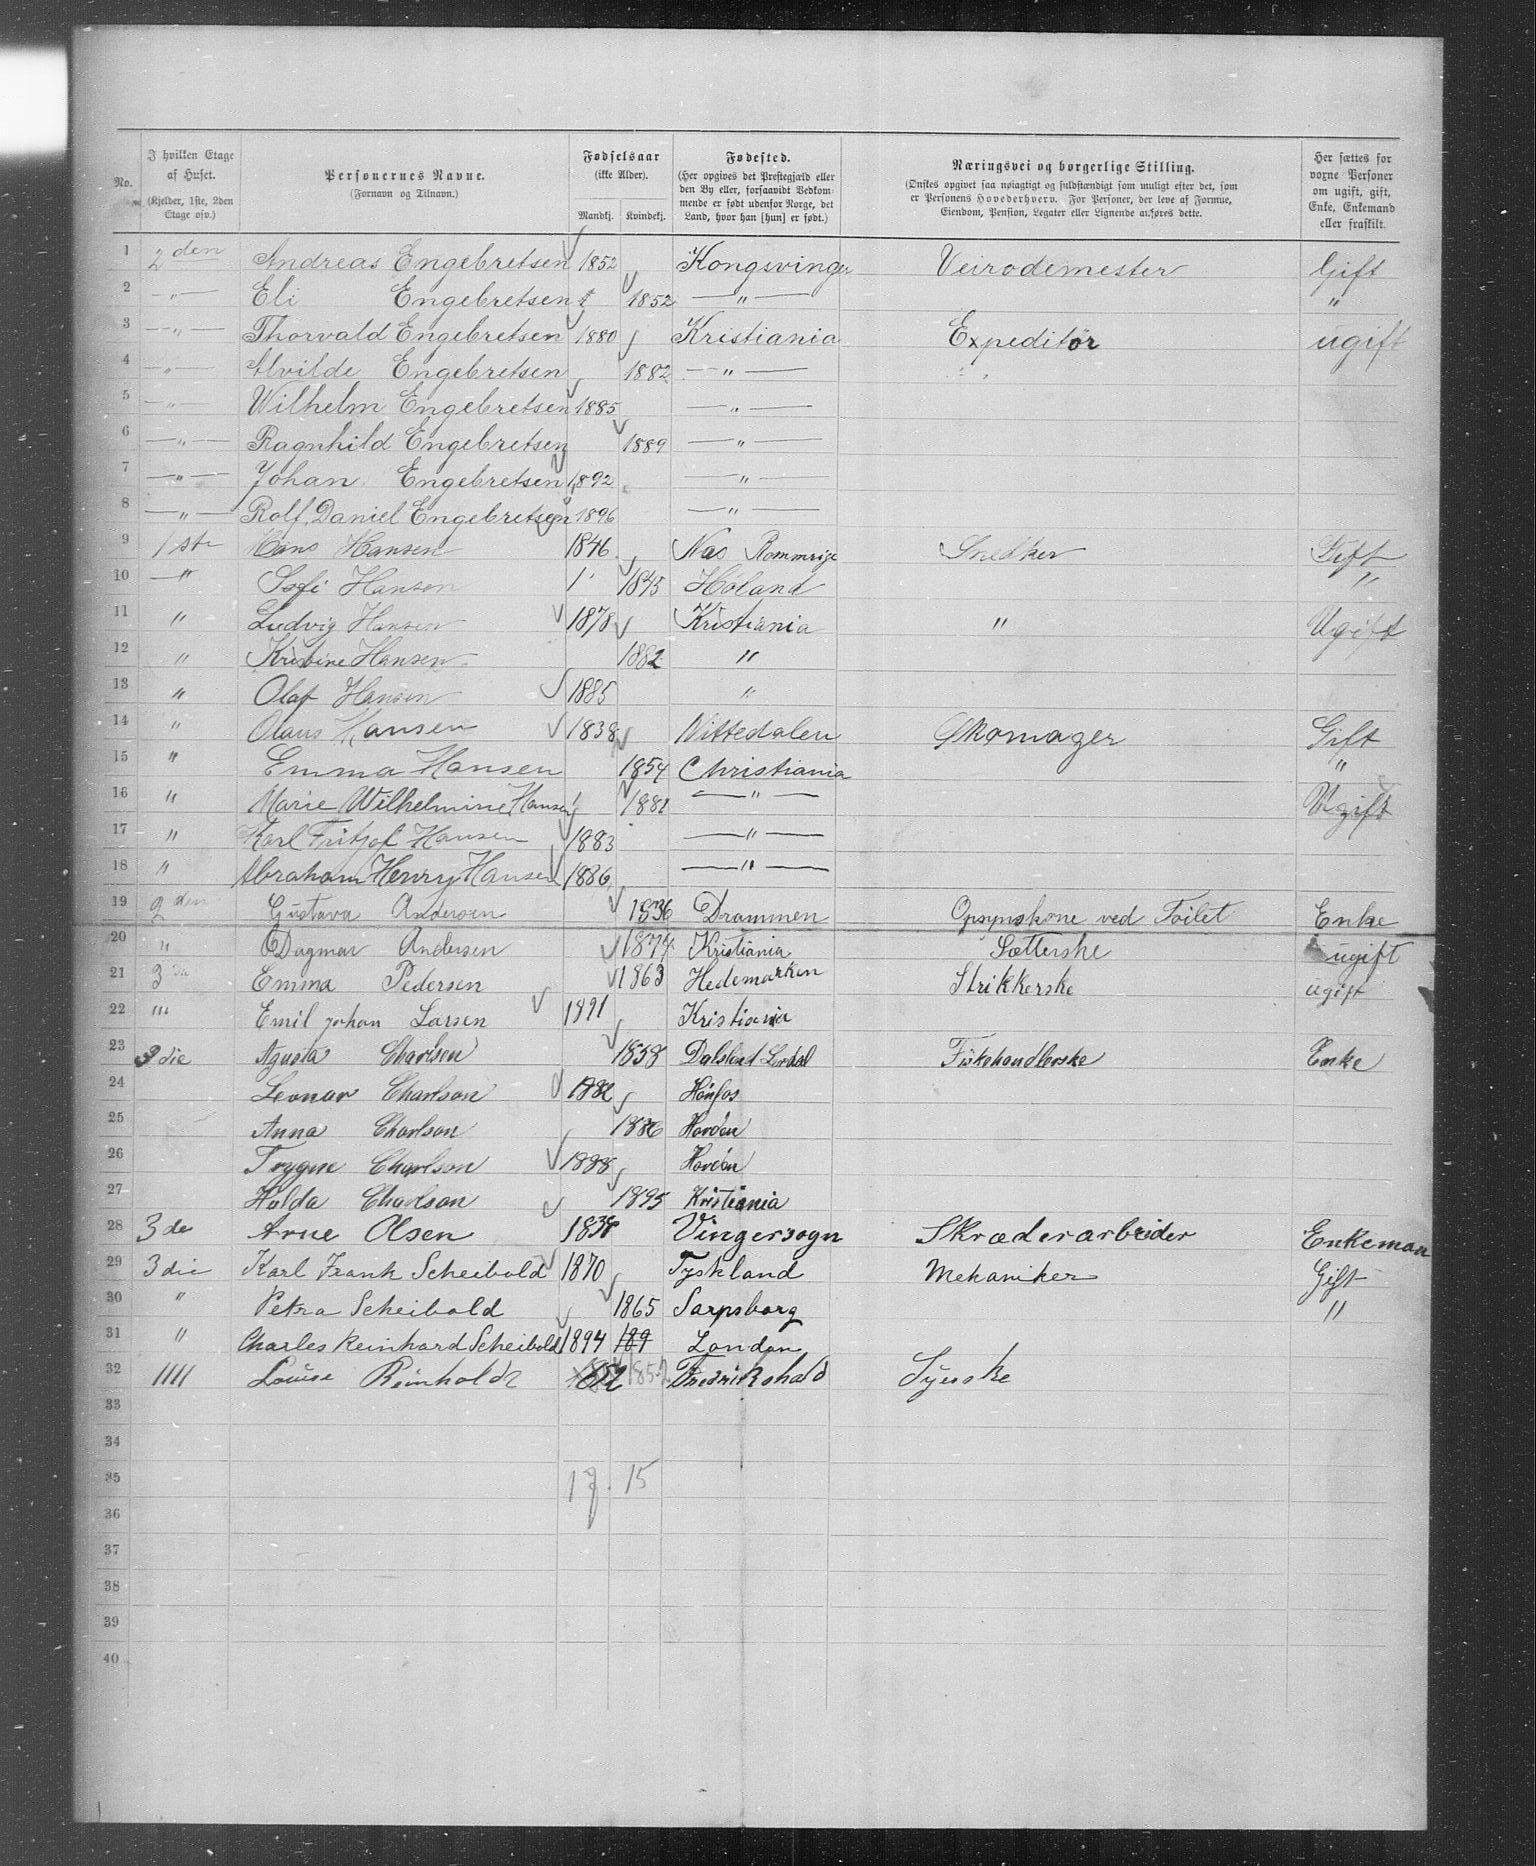 No.
I hvilken Etage af Huset. (Kjelder, 1ste, 2den Etage osv.)
Personernes Navne. (Fornavn og Tilnavn.)
Fødselsaar (ikke Alder). Mandkj. Kvindekj.
Fødested. (Her opgives det Prestegjæld eller den By eller, forsaavidt Vedkommende er født udenfor Norge, det Land, hvor han [hun] er født.)
Næringsvei og borgerlige Stilling. (Ønskes opgivet saa nøiagtigt og fuldstændigt som muligt efter det, som er Personens Hovederhverv. For Personer, der leve af Formue, Eiendom, Pension, Legater eller Lignende anføres dette.)
Her sættes for voxne Personer om ugift, gift, Enke, Enkemand eller fraskilt.
1 2den Andreas Engebretsen 1852 Kongsvinger Veirodemester Gift
2 —"— Eli Engebretsen 1852 —"— "
3 —"— Thorvald Engebretsen 1880 Kristiania Expeditør ugift
4 —"— Alvilde Engebretsen 1882 —"—
5 —"— Wilhelm Engebretsen 1885 —"—
6 —"— Ragnhild Engebretsen 1889 —"—
7 —"— Johan Engebretsen 1892 —"—
8 —"— Rolf, Daniel Engebretsen 1896 —"—
9 1ste Hans Hansen 1846 Næs Rommrige Snedker Gift
10 —" Sofi Hansen 1845 Høland "
11 " Ludvig Hansen 1878 Kristiania " Ugift
12 " Kristine Hansen 1882 "
13 " Olaf Hansen 1885 "
14 " Olaus Hansen 1838 Nittedalen Skomager Gift
15 " Emma Hansen 1854 Christiania "
16 " Marie Wilhelmine Hansen 1881 —"— Ugift
17 " Karl Fritjof Hansen 1883 —"—
18 " Abraham Henry Hansen 1886 —"—
19 2den Gustava Andersen 1836 Drammen Opsynskone ved Toilet Enke
20 " Dagmar Andersen 1874 Kristiania Sætterske ugift
21 3die Emma Pedersen 1863 Hedemarken Strikkerske ugift
22 "" Emil Johan Larsen 1891 Kristiania
23 3die Agusta Charlsen 1858 Fiskehandlerske Enke
24 Leonar Charlson 1882 Hønfos
25 Anna Charlson 1886
26 Trygve Charlson 1888
27 Hulda Charlson 1895 Kristiania
28 3de Arne Olsen 1838 Vingersogn Skræderarbeider Enkeman
29 3die Karl Frank Scheibold 1870 Tyskland Mekaniker Gift
30 " Petra Scheibold 1865 Sarpsborg "
31 " Charles Reinhard Scheibold 1894 189 London
32 "" Louise Reinholdt 1852 1852 Fredrikshald Syerske
33
34
35 17. 15
36
37
38
39
40